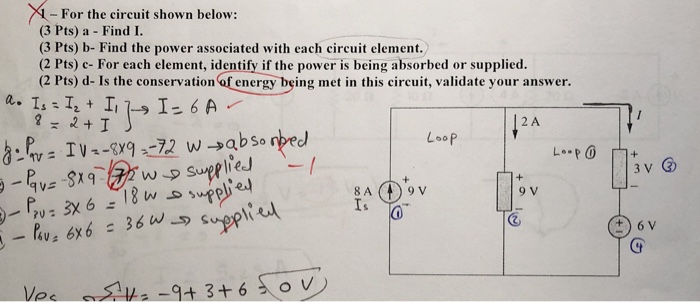 1 – For the circuit shown below:
(3 Pts) a - Find I.
(3 Pts) b- Find the power associated with each circuit element.
(2 Pts) c- For each element, identify if the power is being absorbed or supplied.
(2 Pts) d- Is the conservation of energy being met in this circuit, validate your answer.
a. Is = I2 + I1 → I = 6 A ✓
8 = 2 + I
P9V = IV = -8x9 = -72 W → absorbed
- P9V = -8x9 = 72 W → supplied
-1
- P3V = 3x6 = 18 W → supplied
- P6V = 6x6 = 36 W → supplied
Yes V = -9+3+6 = 0 V
Loop
2 A
I
Loop ①
+
3 V ③
-
8 A
Is
+
9 V
-
①
+
9 V
-
②
+
-
6 V
④